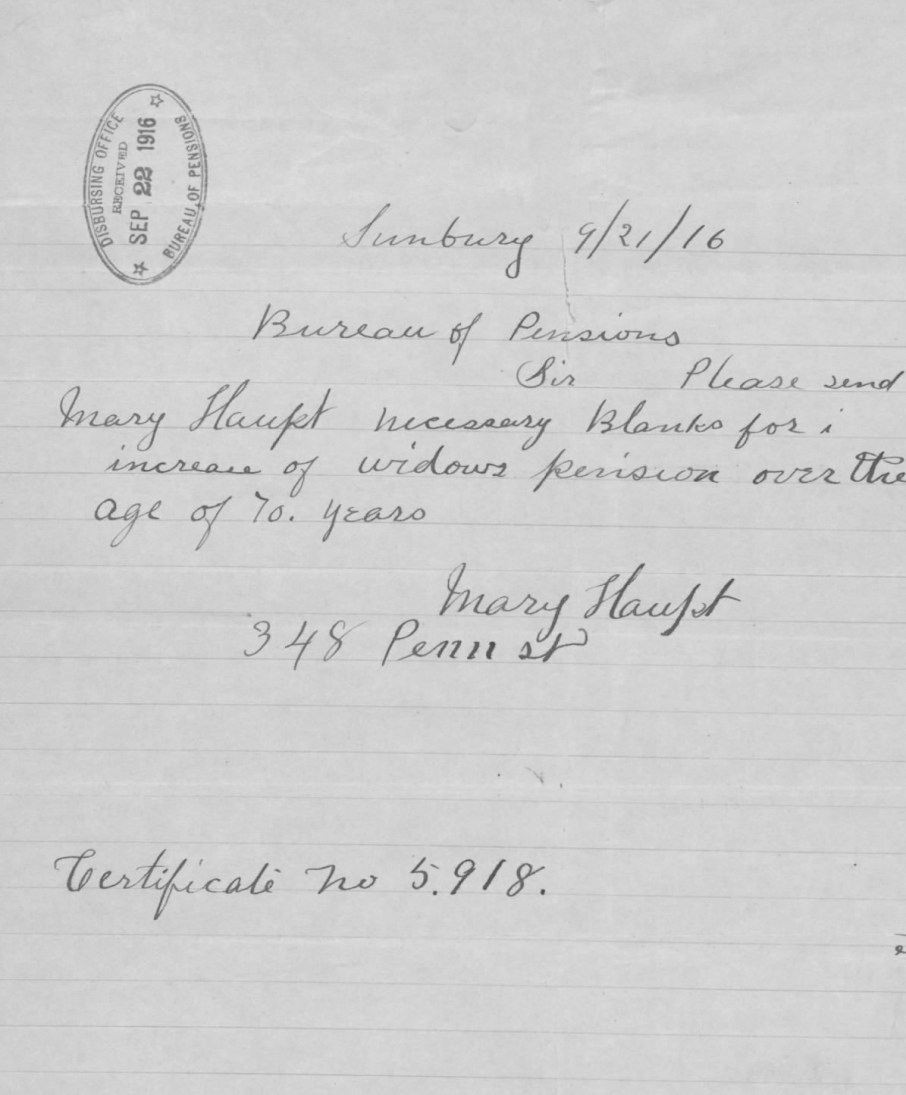 DISBURSING OFFICE
RECEIVED
SEP 22 1916
BUREAU OF PENSIONS
Sunbury 9/21/16
Bureau of Pensions
Sir Please send
Mary Haupt necessary Blanks for i
increase of widows pension over the
age of 70. years
Mary Haupt
348 Penn st
Certificate no 5.918.